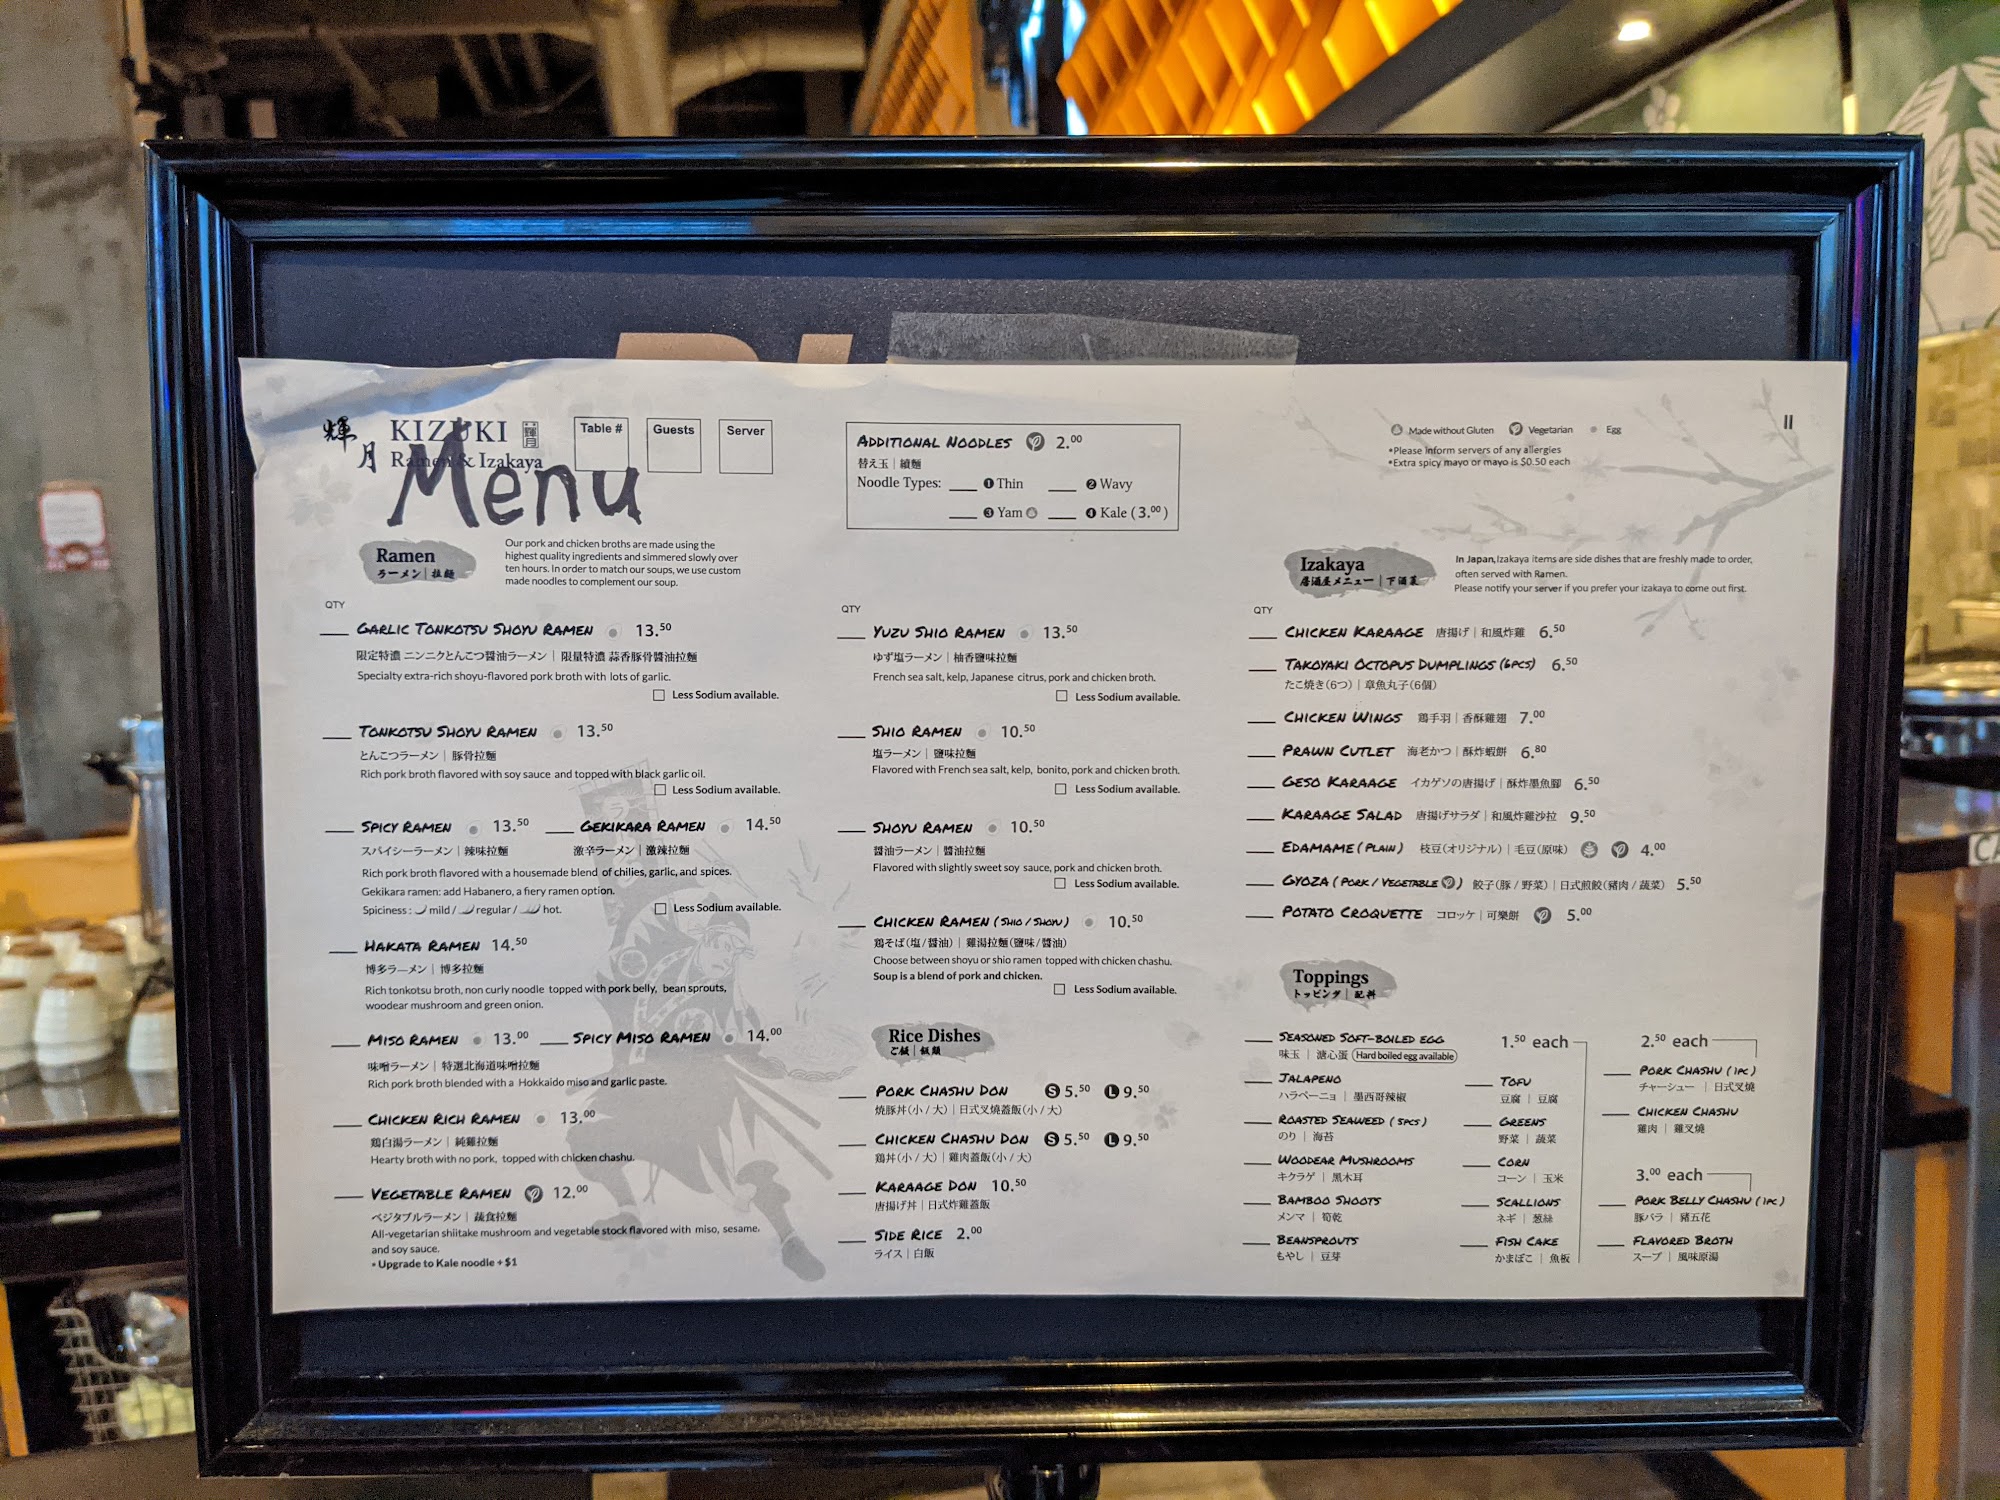 輝月 KIZUKI 輝月
Ramen & Izakaya
Menu
Table #
Guests
Server
ADDITIONAL NOODLES 2.00
替え玉 | 續麵
Noodle Types: ____ ❶ Thin ____ ❷ Wavy
____ ❸ Yam ____ ❹ Kale (3.00)
Made without Gluten Vegetarian Egg
*Please inform servers of any allergies
*Extra spicy mayo or mayo is $0.50 each
Ramen
ラーメン | 拉麵
Our pork and chicken broths are made using the
highest quality ingredients and simmered slowly over
ten hours. In order to match our soups, we use custom
made noodles to complement our soup.
QTY
____ GARLIC TONKOTSU SHOYU RAMEN 13.50
限定特濃 ニンニクとんこつ醤油ラーメン | 限量特濃 蒜香豚骨醬油拉麵
Specialty extra-rich shoyu-flavored pork broth with lots of garlic.
☐ Less Sodium available.
____ TONKOTSU SHOYU RAMEN 13.50
とんこつラーメン | 豚骨拉麵
Rich pork broth flavored with soy sauce and topped with black garlic oil.
☐ Less Sodium available.
____ SPICY RAMEN 13.50 ____ GEKIKARA RAMEN 14.50
スパイシーラーメン | 辣味拉麵 激辛ラーメン | 激辣拉麵
Rich pork broth flavored with a housemade blend of chilies, garlic, and spices.
Gekikara ramen: add Habanero, a fiery ramen option.
Spiciness : mild / regular / hot. ☐ Less Sodium available.
____ HAKATA RAMEN 14.50
博多ラーメン | 博多拉麵
Rich tonkotsu broth, non curly noodle topped with pork belly, bean sprouts,
woodear mushroom and green onion.
____ MISO RAMEN 13.00 ____ SPICY MISO RAMEN 14.00
味噌ラーメン | 特選北海道味噌拉麵
Rich pork broth blended with a Hokkaido miso and garlic paste.
____ CHICKEN RICH RAMEN 13.00
鶏白湯ラーメン | 純雞拉麵
Hearty broth with no pork, topped with chicken chashu.
____ VEGETABLE RAMEN 12.00
ベジタブルラーメン | 蔬食拉麵
All-vegetarian shiitake mushroom and vegetable stock flavored with miso, sesame,
and soy sauce.
• Upgrade to Kale noodle + $1
QTY
____ YUZU SHIO RAMEN 13.50
ゆず塩ラーメン | 柚香鹽味拉麵
French sea salt, kelp, Japanese citrus, pork and chicken broth.
☐ Less Sodium available.
____ SHIO RAMEN 10.50
塩ラーメン | 鹽味拉麵
Flavored with French sea salt, kelp, bonito, pork and chicken broth.
☐ Less Sodium available.
____ SHOYU RAMEN 10.50
醤油ラーメン | 醬油拉麵
Flavored with slightly sweet soy sauce, pork and chicken broth.
☐ Less Sodium available.
____ CHICKEN RAMEN (SHIO / SHOYU) 10.50
鶏そば(塩/醤油) | 雞湯拉麵(鹽味/醬油)
Choose between shoyu or shio ramen topped with chicken chashu.
Soup is a blend of pork and chicken.
☐ Less Sodium available.
Rice Dishes
ご飯 | 飯類
____ PORK CHASHU DON S 5.50 L 9.50
焼豚丼(小 / 大) | 日式叉燒蓋飯(小 / 大)
____ CHICKEN CHASHU DON S 5.50 L 9.50
鶏丼(小 / 大) | 雞肉蓋飯(小 / 大)
____ KARAAGE DON 10.50
唐揚げ丼 | 日式炸雞蓋飯
____ SIDE RICE 2.00
ライス | 白飯
Izakaya
居酒屋メニュー | 下酒菜
In Japan, Izakaya items are side dishes that are freshly made to order,
often served with Ramen.
Please notify your server if you prefer your izakaya to come out first.
QTY
____ CHICKEN KARAAGE 唐揚げ | 和風炸雞 6.50
____ TAKOYAKI OCTOPUS DUMPLINGS (6PCS) 6.50
たこ焼き(6つ) | 章魚丸子(6個)
____ CHICKEN WINGS 鶏手羽 | 香酥雞翅 7.00
____ PRAWN CUTLET 海老かつ | 酥炸蝦餅 6.80
____ GESO KARAAGE イカゲソの唐揚げ | 酥炸墨魚腳 6.50
____ KARAAGE SALAD 唐揚げサラダ | 和風炸雞沙拉 9.50
____ EDAMAME (PLAIN) 枝豆(オリジナル) | 毛豆(原味) 4.00
____ GYOZA (PORK / VEGETABLE) 餃子(豚 / 野菜) | 日式煎餃(豬肉 / 蔬菜) 5.50
____ POTATO CROQUETTE コロッケ | 可樂餅 5.00
Toppings
トッピング | 配料
____ SEASONED SOFT-BOILED EGG 1.50 each
味玉 | 溏心蛋 (Hard boiled egg available)
____ JALAPENO
ハラペーニョ | 墨西哥辣椒
____ ROASTED SEAWEED (5PCS)
のり | 海苔
____ WOODEAR MUSHROOMS
キクラゲ | 黑木耳
____ BAMBOO SHOOTS
メンマ | 筍乾
____ BEANSPROUTS
もやし | 豆芽
____ TOFU
豆腐 | 豆腐
____ GREENS
野菜 | 蔬菜
____ CORN
コーン | 玉米
____ SCALLIONS
ネギ | 葱絲
____ FISH CAKE
かまぼこ | 魚板
2.50 each
____ PORK CHASHU (1PC)
チャーシュー | 日式叉燒
____ CHICKEN CHASHU
雞肉 | 雞叉燒
3.00 each
____ PORK BELLY CHASHU (1PC)
豚バラ | 豬五花
____ FLAVORED BROTH
スープ | 風味原湯